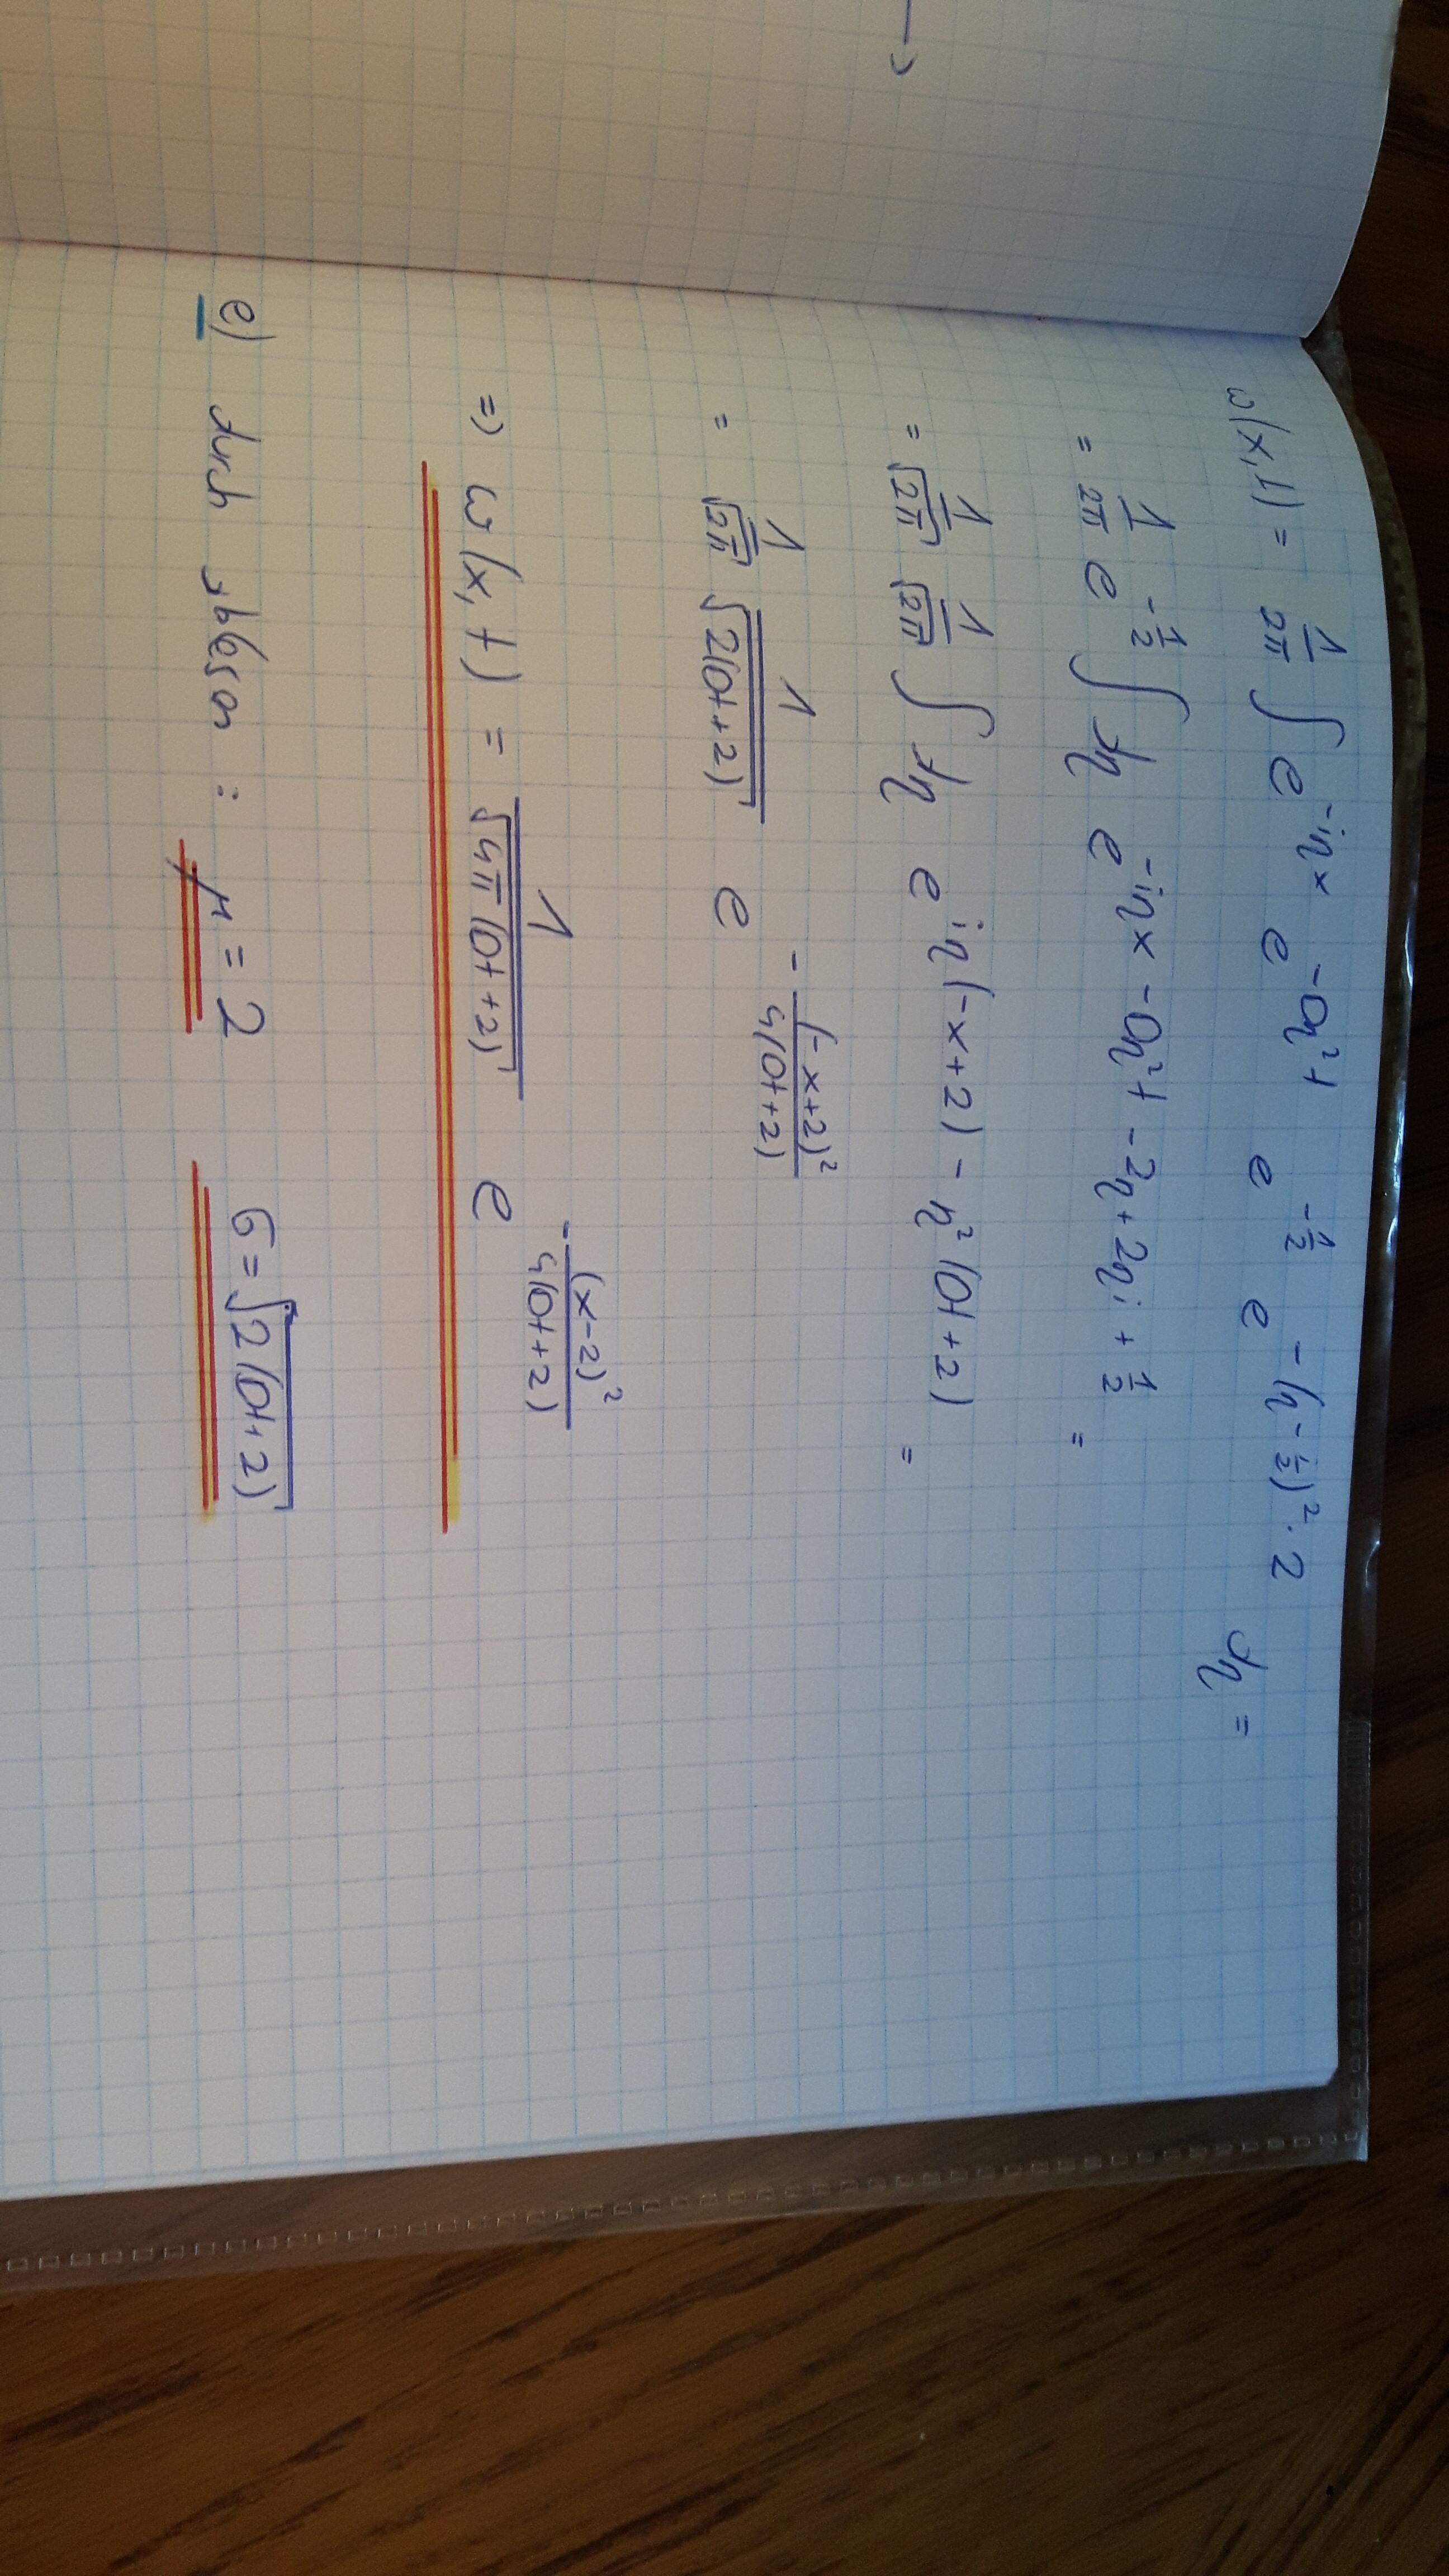 →
ω(x,t) = 1/2π ∫ e^(-iηx) e^(-Dη²t) e^(-1/2) e^(-(η - i/2)²·2) dη =
= 1/2π e^(-1/2) ∫ dη e^(-iηx - Dη²t - 2η² + 2ηi + 1/2) =
= 1/√2π 1/√2π ∫ dη e^(iη(-x+2) - η²(Dt+2)) =
= 1/√2π 1/√(2(Dt+2)) e^(-(-x+2)²/4(Dt+2))
=> ω(x,t) = 1/√(4π(Dt+2)) e^(-(x-2)²/4(Dt+2))
e) durch ablesen : μ = 2 σ = √(2(Dt+2))